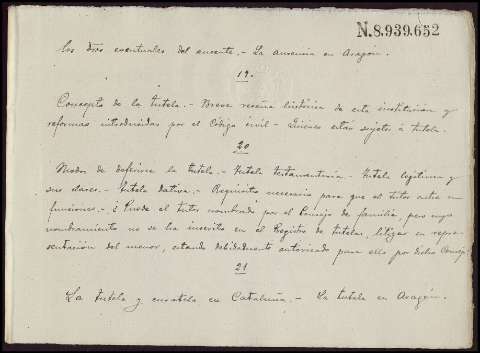 N.8.939.652
los dros eventuales del ausente. - La ausencia en Aragón.
19.
Concepto de la tutela. - Breve reseña histórica de esta institución y
reformas introducidas por el Código civil - Quienes están sujetos á tutela.
20
Modos de deferirse la tutela. - Tutela testamentaria - tutela legítima y
sus clases. - Tutela dativa. - Requisitos necesarios para que el tutor entre en
funciones. - ¿Puede el tutor nombrado por el Consejo de familia, pero cuyo
nombramiento no se ha inscrito en el Registro de tutelas, litigar en repre-
sentación del menor, estando debidamente autorizado para ello por dicho Consejo
21
La tutela y curatela en Cataluña. - La tutela en Aragón.